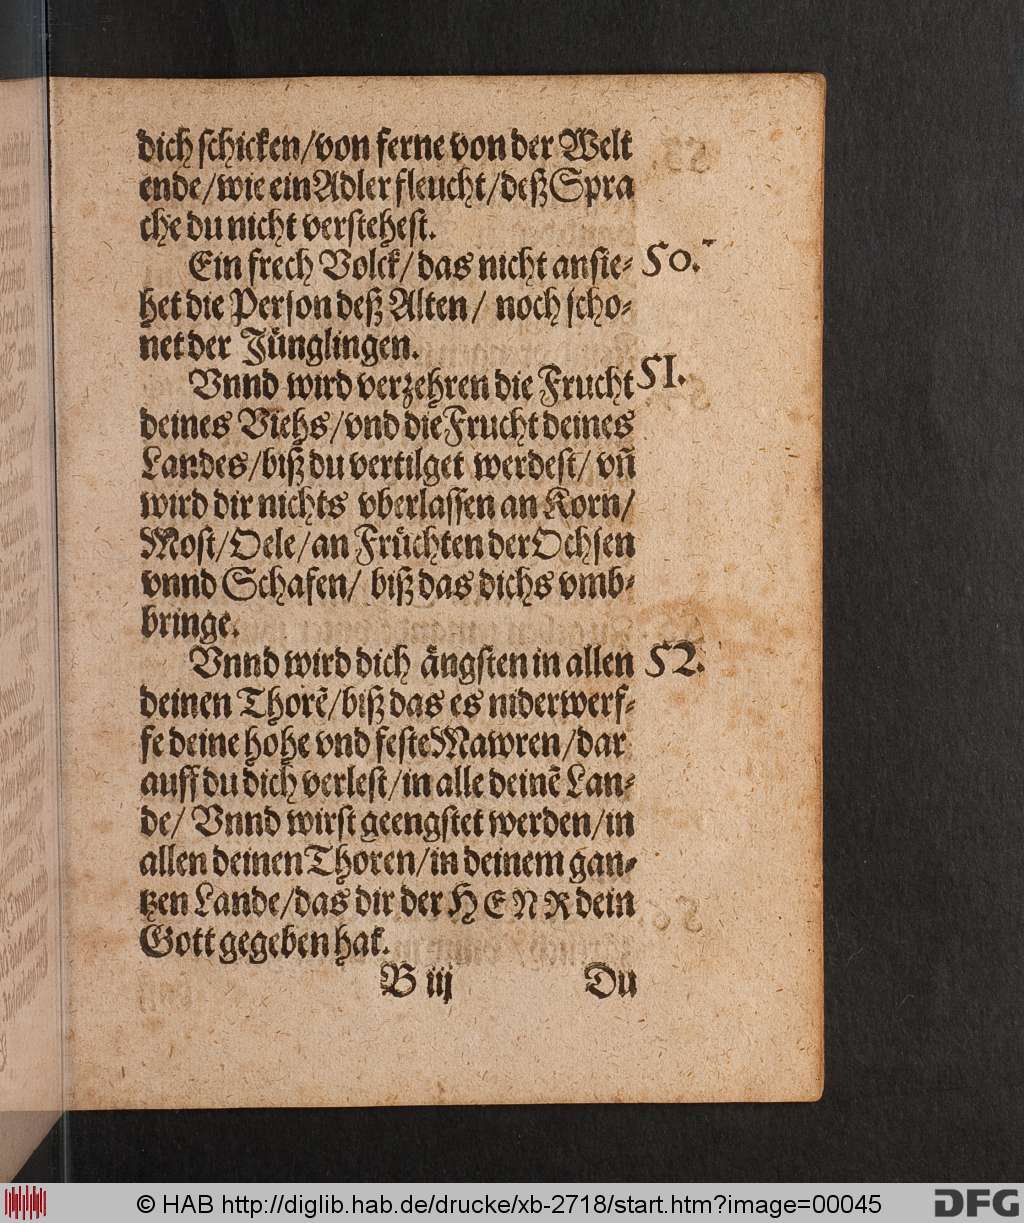 dich schicken/von ferne von der Welt
ende/wie ein Adler fleucht/deß Spra
che du nicht verstehest.
Ein frech Volck/das nicht ansie- 50.
het die Person deß Alten/ noch scho-
net der Jünglingen.
Vnnd wird verzehren die Frucht 51.
deines Viehs/vnd die Frucht deines
Landes/biß du vertilget werdest/ vñ
wird dir nichts vberlassen an Korn/
Most/Oele/an Früchten der Ochsen
vnnd Schafen/ biß das dichs vmb-
bringe.
Vnnd wird dich ängsten in allen 52.
deinen Thorẽ/biß das es niderwerf-
fe deine hohe vnd feste Mawren/dar
auff du dich verlest/in alle deinẽ Lan-
de/ Vnnd wirst geengstet werden/in
allen deinen Thoren/in deinem gan-
tzen Lande/das dir der HERR dein
Gott gegeben hat.
B iij Du
© HAB http://diglib.hab.de/drucke/xb-2718/start.htm?image=00045 DFG